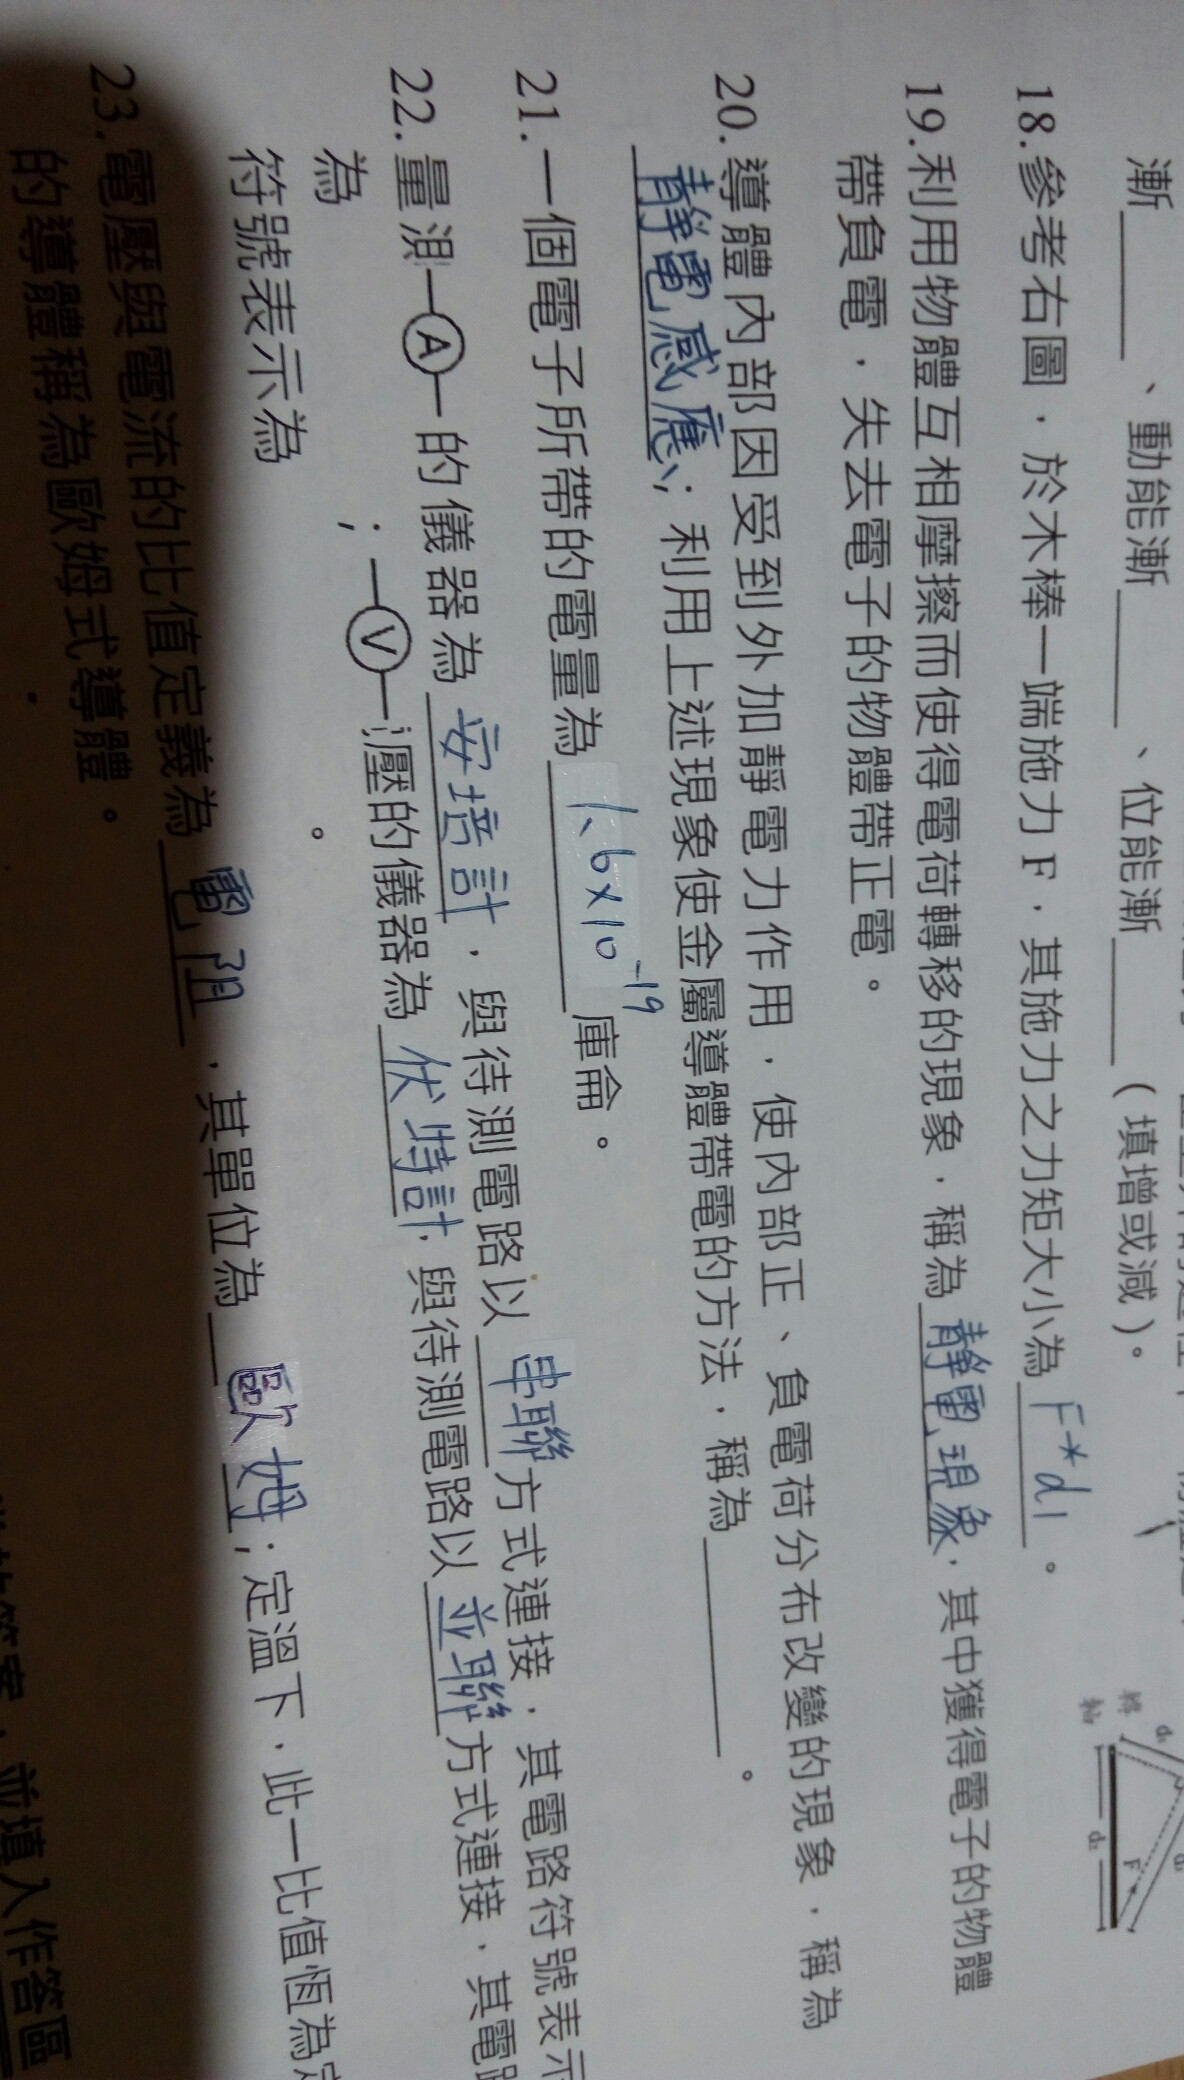 漸______、動能漸______、位能漸______(填增或減)。
18.參考右圖,於木棒一端施力 F,其施力之力矩大小為 F*d1。
轉軸 d1
F
d2
19.利用物體互相摩擦而使得電荷轉移的現象,稱為靜電現象,其中獲得電子的物體
帶負電,失去電子的物體帶正電。
20.導體內部因受到外加靜電力作用,使內部正、負電荷分布改變的現象,稱為
靜電感應;利用上述現象使金屬導體帶電的方法,稱為______。
21.一個電子所帶的電量為 1.6x10⁻¹⁹ 庫侖。
22.量測 A 的儀器為 安培計,與待測電路以 串聯 方式連接,其電路符號表示
為 ; V 壓的儀器為 伏特計,與待測電路以 並聯 方式連接,其電路
符號表示為 。
23.電壓與電流的比值定義為 電阻,其單位為 歐姆;定溫下,此一比值恆為定
的導體稱為歐姆式導體。
答案,並填入作答區